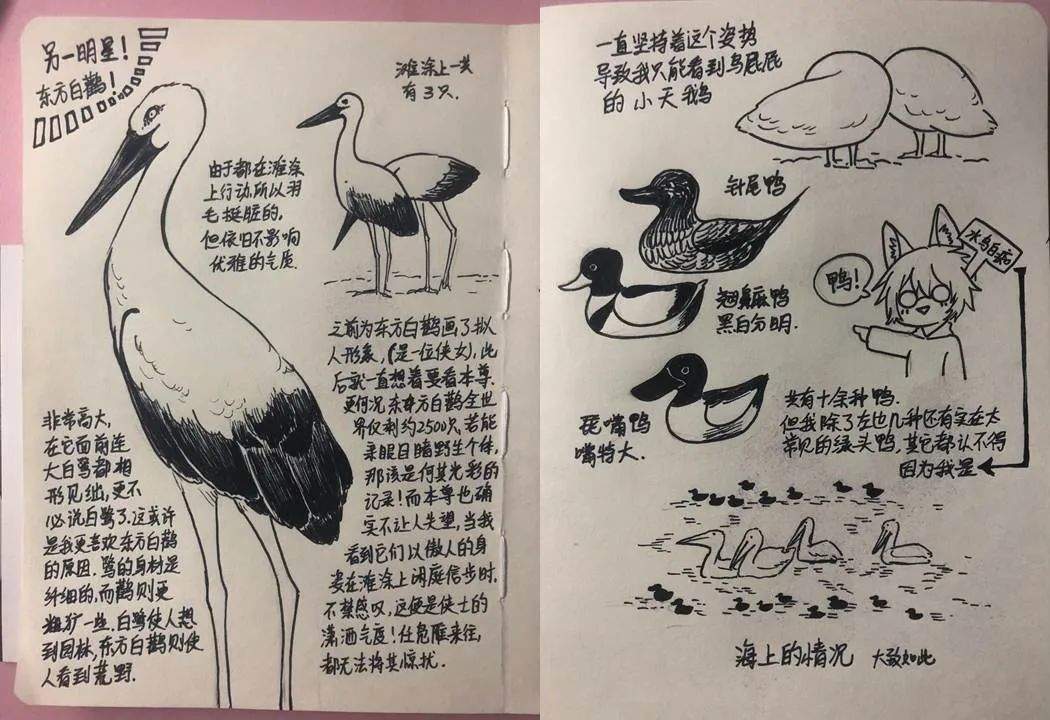 另一明星!
东方白鹳!
滩涂上一共
有3只.
由于都在滩涂
上行动,所以羽
毛挺脏的,
但依旧不影响
优雅的气质.
之前为东方白鹳画了拟
人形象,(是一位侠女),此
后就一直想着要看本尊.
更何况,东方白鹳全世
界仅剩约2500只,若能
亲眼目睹野生个体,
那该是何其光彩的
记录!而本尊也确
实不让人失望,当我
看到它们以傲人的身
姿在滩涂上闲庭信步时,
不禁感叹,这便是侠士的
潇洒气度!任危雁来往,
都无法将其惊扰.
非常高大,
在它面前连
大白鹭都相
形见绌,更不
必说白鹭了.这或许
是我更喜欢东方白鹳
的原因.鹭的身材是
纤细的,而鹳则更
粗犷一些.白鹭使人想
到园林,东方白鹳则使
人看到荒野.
一直坚持着这个姿势
导致我只能看到鸟屁屁
的小天鹅
针尾鸭
翘鼻麻鸭
黑白分明.
鸭!
水鸟白痴
琵嘴鸭
嘴特大.
共有十余种鸭.
但我除了左边几种还有实在太
常见的绿头鸭,其它都认不得
因为我是
海上的情况 大致如此